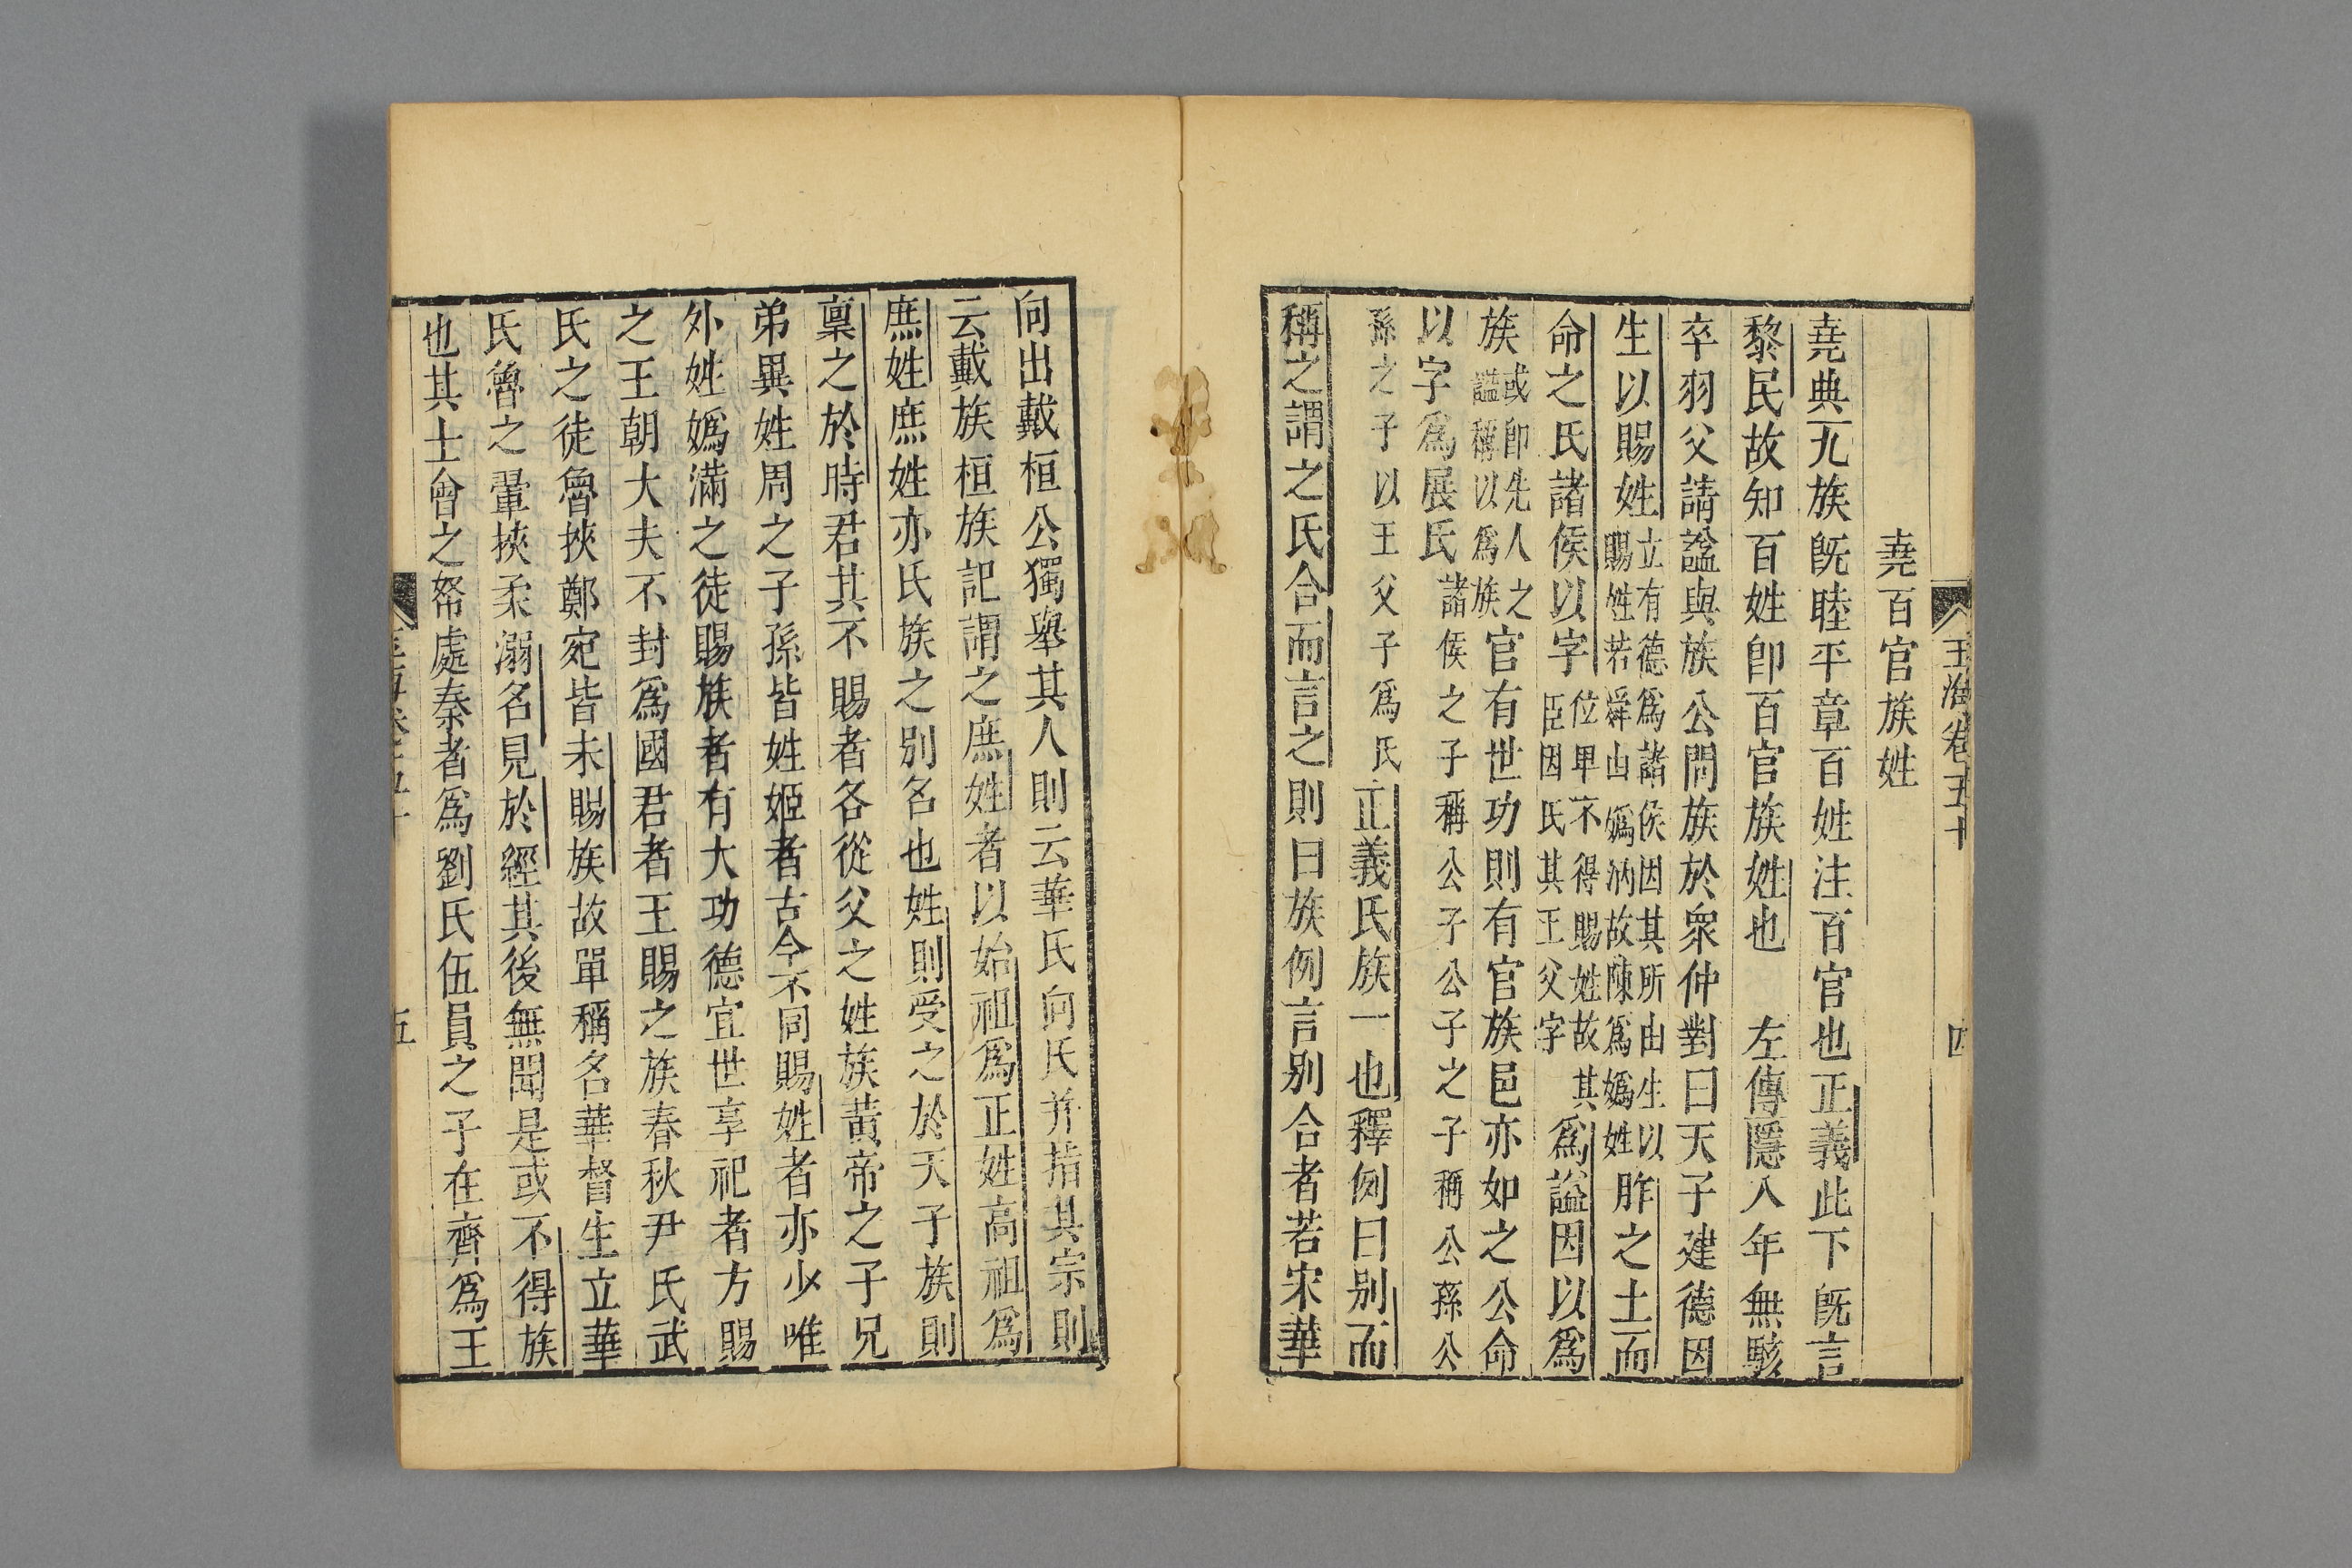 玉海卷五十 四
堯百官族姓
堯典九族旣睦平章百姓注百官也正義此下旣言
黎民故知百姓卽百官族姓也 左傳隱八年無駭
卒羽父請諡與族公問族於衆仲對曰天子建德因
生以賜姓立有德爲諸侯因其所由生以賜姓若舜由嬀汭故陳爲嬀姓胙之土而
命之氏諸侯以字位卑不得賜姓故其臣因氏其王父字爲諡因以爲
族或卽先人之諡稱以爲族官有世功則有官族邑亦如之公命
以字爲展氏諸侯之子稱公子公子之子稱公孫公
孫之子以王父字爲氏正義氏族一也釋例曰别而
稱之謂之氏合而言之則曰族例言别合者若宋華
向出戴桓公獨舉其人則云華氏向氏并指其宗則
云戴族桓族記謂之庶姓者以始祖爲正姓高祖爲
庶姓庶姓亦氏族之别名也姓則受之於天子族則
稟之於時君其不賜者各從父之姓族黃帝之子兄
弟異姓周之子孫皆姓姬者古今不同賜姓者亦少唯
外姓嬀滿之徒賜族者有大功德宜世享祀者方賜
之王朝大夫不封爲國君者王賜之族春秋尹氏武
氏之徒魯挾鄭宛皆未賜族故單稱名華督生立華
氏魯之翬挾柔溺名見於經其後無聞是或不得族
也其士會之帑處秦者爲劉氏伍員之子在齊爲王
五